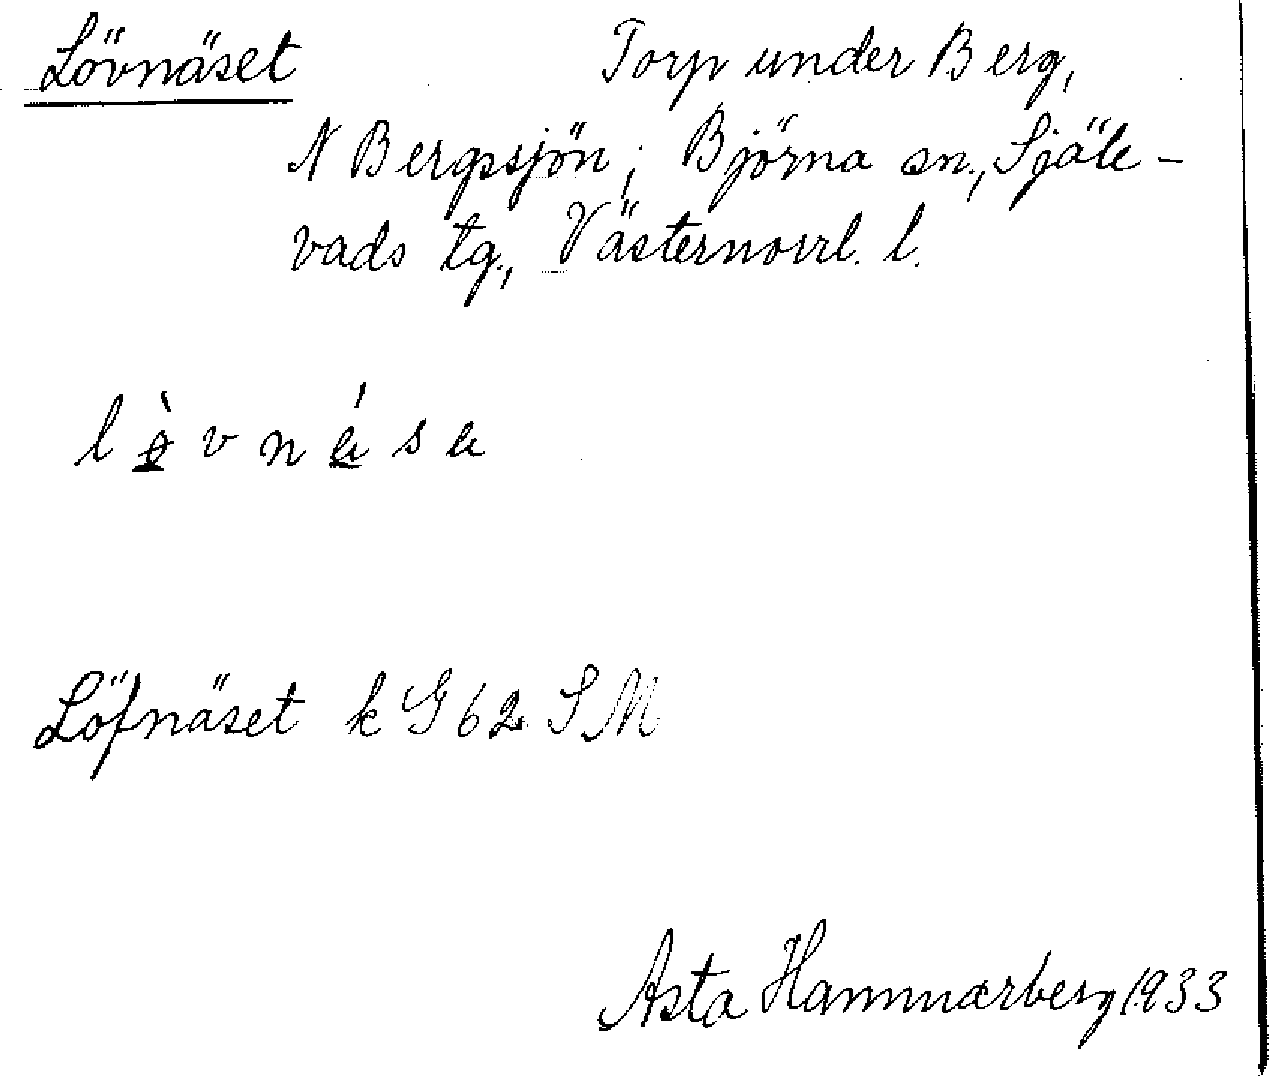 Lövnäset Torp under Berg,
N Bergssjön; Björna sn., Själe-
vads tg., Västernorrl. l.
Löfnäset k G 62 SM
Asta Hammarberg 1933